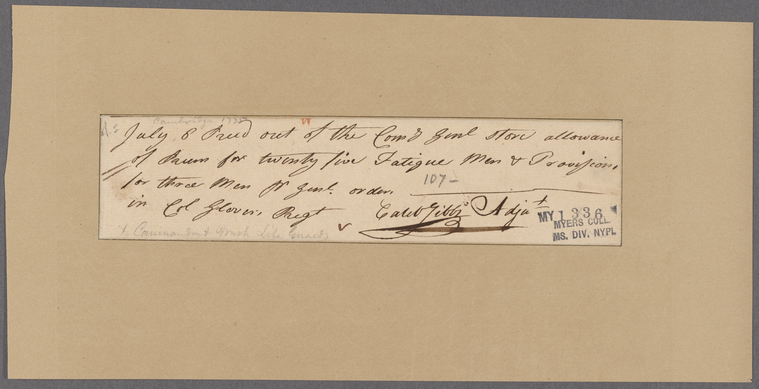 Cambridge 1775
July 8 Recd out of the Comd Genl store allowance
of Rum for twenty five Fatigue Men & Provisions
for three Men pr Genl. orders
107-
in Col Glovers Regt Caleb Gibbs Adjat
to Command Wash Life Guard
MY 1336
MYERS COLL.
MS. DIV. NYPL